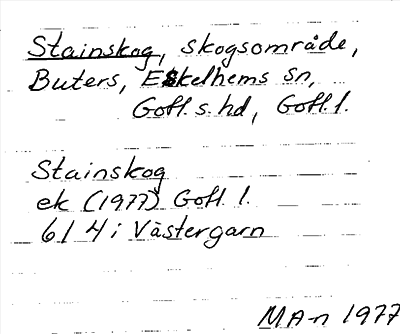 Stainskog, skogsområde,
Buters, Eskelhems sn,
Gotl. s. hd, Gotl. l.
Stainskog
ek (1977) Gotl. l.
6 I 4 i Västergarn
MA-n 1977